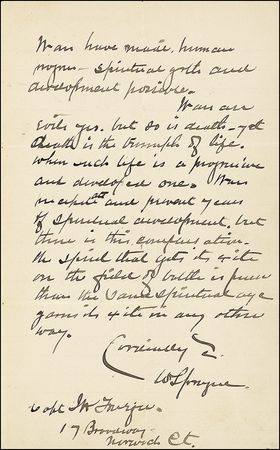 Wars have made human
progress - spiritual gifts and
development possible.
Wars are
evils yes. but so is death - yet
death is the triumph of life.
when such life is a progressive
and developed one. Wars
and prevent years
of spiritual development, but
there is this compensation.
the spirit that gets its exit
on the field of battle is freer
than the same spiritual age
gains its exit in any other
way.
Cordially &c.
W Sprague.
Capt
17 Broadway
Norwich Ct.